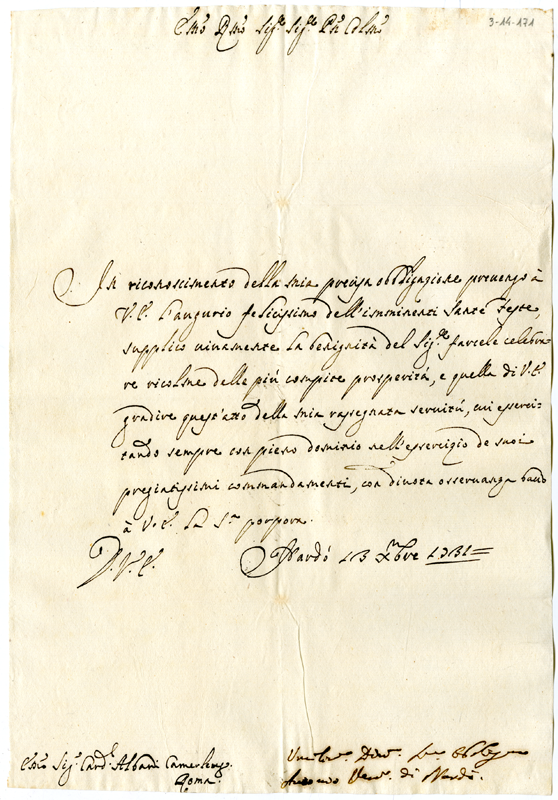 3-14-171
Emo Rmo Sig.re Sig.re Pñ Colmo
In riconoscimento della mia precisa obbligazione prevengo à
V.E. l'augurio felicissimo dell'imminenti Sante Feste,
supplico vivamente la benignità del Sig.re farcele celebra-
re ricolme delle più compite prosperità, e quella di V.E.
gradire quest'atto della mia rassegnata servitù, cui esserci-
tando sempre con pieno dominio nell'essercizio de suoi
pregiatissimi commandamenti, con divota osservanza baccio
à V.E. la S.ra porpora.
D.V.E. Nardò 13 Xmbre 1731=
Emo Sig.r Card.le Albani Camerlengo.
Roma.
Umil.o Div.o Obblig.
Antonio Vesc.o di Nardò.